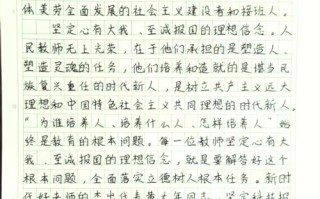 体美劳全面发展的社会主义建设者和接班人。
坚定心有大我、至诚报国的理想信念。人
民教师无上光荣，在于他们承担的是塑造人、
塑造灵魂的任务，他们培养和造就的是堪当民
族复兴重任的时代新人，是树立共产主义远大
理想和中国特色社会主义共同理想的时代新人。
“为谁培养人、培养什么人、怎样培养人”始
终是教育的根本问题。每一位教师坚定心有大
我、至诚报国的理想信念，就是要解答好这个
根本问题，全面落实立德树人根本任务。新时
代好老师的杰出代表黄大年同志，坚定科技报